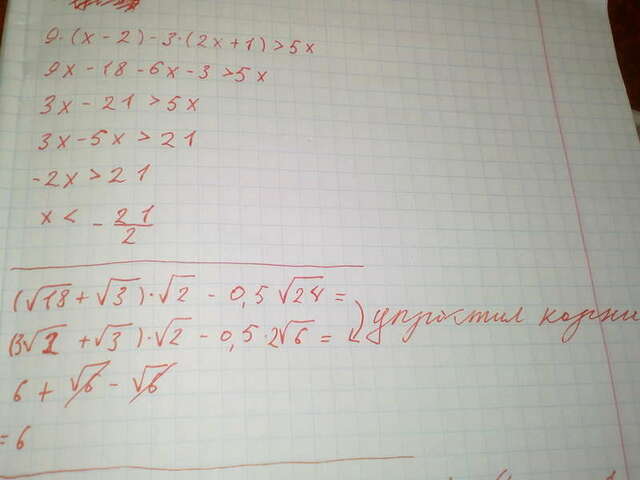 9·(x-2)-3·(2x+1)>5x
9x-18-6x-3>5x
3x-21>5x
3x-5x>21
-2x>21
x<-21/2
(√18+√3)·√2-0,5√24=
(3√2+√3)·√2-0,5·2√6=
упростил корни
6+√6-√6
=6